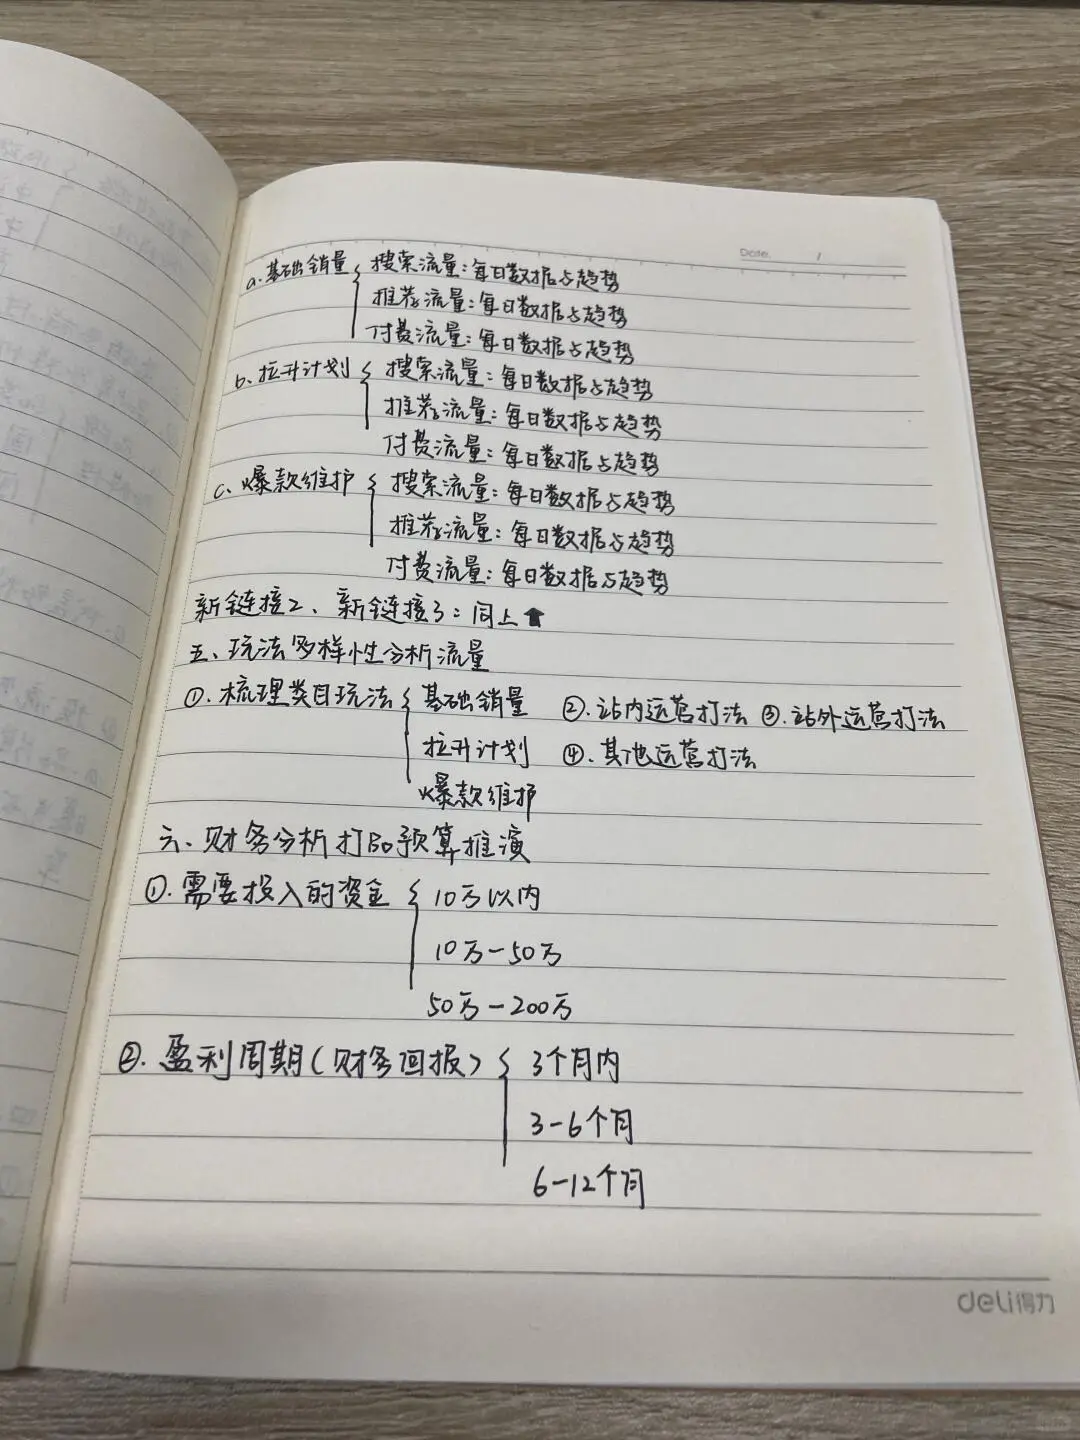 Date. /
a.基础销量{搜索流量:每日数据与趋势
推荐流量:每日数据与趋势
付费流量:每日数据与趋势
b.拉升计划{搜索流量:每日数据与趋势
推荐流量:每日数据与趋势
付费流量:每日数据与趋势
c.爆款维护{搜索流量:每日数据与趋势
推荐流量:每日数据与趋势
付费流量:每日数据与趋势
新链接2、新链接3:同上⬆
五、玩法多样性分析流量
①.梳理类目玩法{基础销量 ②.站内运营打法 ③.站外运营打法
拉升计划 ④.其他运营打法
爆款维护
六、财务分析打品预算推演
①.需要投入的资金{10万以内
10万-50万
50万-200万
②.盈利周期(财务回报){3个月内
3-6个月
6-12个月
deli得力